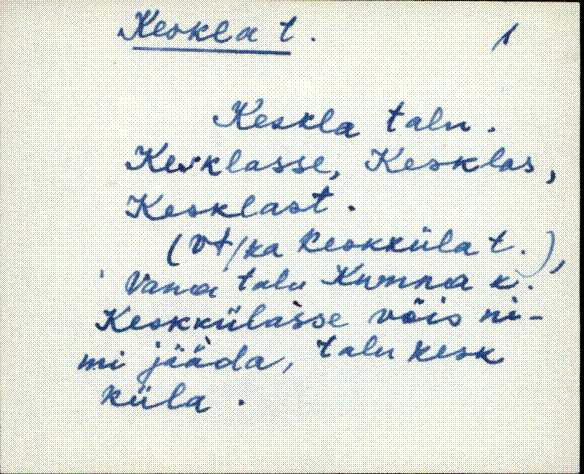 Keskla t. 1
Keskla talu.
Kesklasse, Kesklas,
Kesklast.
(vt/ka Keskküla t.),
Vana talu Kumna k.
Keskkülasse võis ni-
mi jääda, talu kesk
küla.